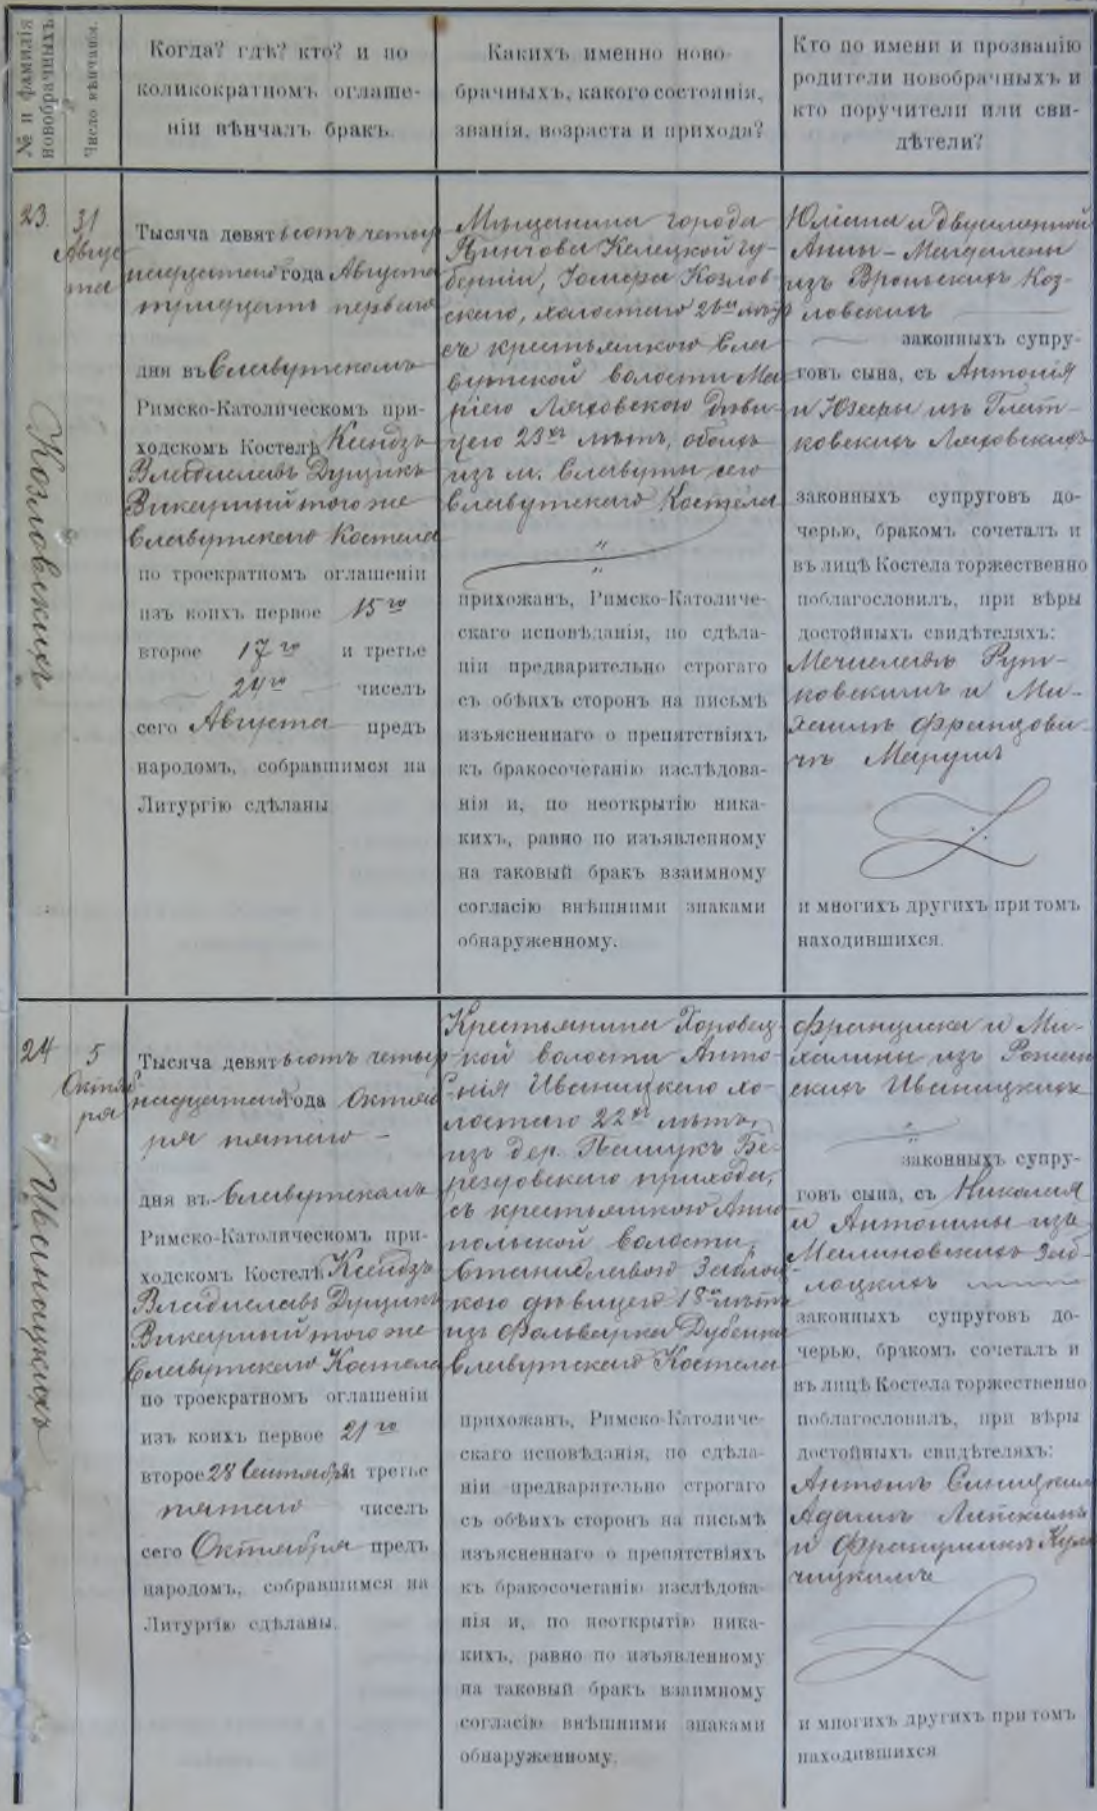 № и фамилія
новобрачныхъ.
Число вѣнчанія.
Когда? гдѣ? кто? и по
коликократномъ оглаше-
ніи вѣнчалъ бракъ.
Какихъ именно ново-
брачныхъ, какого состоянія,
званія, возраста и прихода?
Кто по имени и прозванію
родители новобрачныхъ и
кто поручители или сви-
дѣтели?
23.
Козловскихъ
31
Авгус
та
Тысяча девятьсотъ четыр
надцатаго года Августа
тридцать перваго
дня въ Славутскомъ
Римско-Католическомъ при-
ходскомъ Костелѣ Ксендзъ
Владиславъ Дущикъ
Викарный того же
Славутскаго Костела
по троекратномъ оглашеніи
изъ коихъ первое 15го
второе 17го и третье
24го чиселъ
сего Августа предъ
народомъ, собравшимся на
Литургію сдѣланы
Мѣщанина города
Пинчова Келецкой гу-
берніи, Козлов-
скаго, холостаго 26ти лѣтъ
съ крестьянкою Сла
вутской волости Ма
ріею Ляховскою дѣви-
цею 23хъ лѣтъ, обоихъ
изъ м. Славуты сего
Славутскаго Костела
"
"
прихожанъ, Римско-Католиче-
скаго исповѣданія, по сдѣла-
ніи предварительно строгаго
съ обѣихъ сторонъ на письмѣ
изъясненнаго о препятствіяхъ
къ бракосочетанію изслѣдова-
нія и, по неоткрытію ника-
кихъ, равно по изъявленному
на таковый бракъ взаимному
согласію внѣшними знаками
обнаруженному.
Юліана и двуименной
Анны-Магдалены
изъ Вроньскихъ Коз-
ловскихъ
законныхъ супру-
говъ сына, съ Антонія
и Юзефы изъ
Ляховскихъ
законныхъ супруговъ до-
черью, бракомъ сочеталъ и
въ лицѣ Костела торжественно
поблагословилъ, при вѣры
достойныхъ свидѣтеляхъ:
Мечиславѣ Рут-
ковскимъ и Ми-
хаилѣ Францови-
чѣ
и многихъ другихъ при томъ
находившихся.
24
Иваницкихъ
5
Октяб
ря
Тысяча девятьсотъ четыр
надцатаго года Октяб
ря пятаго
дня въ Славутскомъ
Римско-Католическомъ при-
ходскомъ Костелѣ Ксендзъ
Владиславъ Дущикъ
Викарный того же
Славутскаго Костела
по троекратномъ оглашеніи
изъ коихъ первое 21го
второе 28 Сентября и третье
пятаго чиселъ
сего Октября предъ
народомъ, собравшимся на
Литургію сдѣланы.
Крестьянина Хоровец-
кой волости Анто-
нія Иваницкаго хо-
лостаго 22хъ лѣтъ,
изъ дер. Пашукъ Бе-
рездовскаго прихода,
съ крестьянкою Анно
польской волости,
Станиславою Заблоц-
кою дѣвицею 18ти лѣтъ
изъ фольварка Дубенки
Славутскаго Костела
прихожанъ, Римско-Католиче-
скаго исповѣданія, по сдѣла-
ніи предварительно строгаго
съ обѣихъ сторонъ на письмѣ
изъясненнаго о препятствіяхъ
къ бракосочетанію изслѣдова-
нія и, по неоткрытію ника-
кихъ, равно по изъявленному
на таковый бракъ взаимному
согласію внѣшними знаками
обнаруженному.
Франциска и Ми-
халины изъ
Иваницкихъ
"
законныхъ супру-
говъ сына, съ Николая
и Антонины изъ
Малиновскихъ Заб-
лоцкихъ
законныхъ супруговъ до-
черью, бракомъ сочеталъ и
въ лицѣ Костела торжественно
поблагословилъ, при вѣры
достойныхъ свидѣтеляхъ:
Антонѣ Синицкимъ
Адамѣ Липскимъ
и Францишкѣ Куль
чицкимъ
и многихъ другихъ при томъ
находившихся